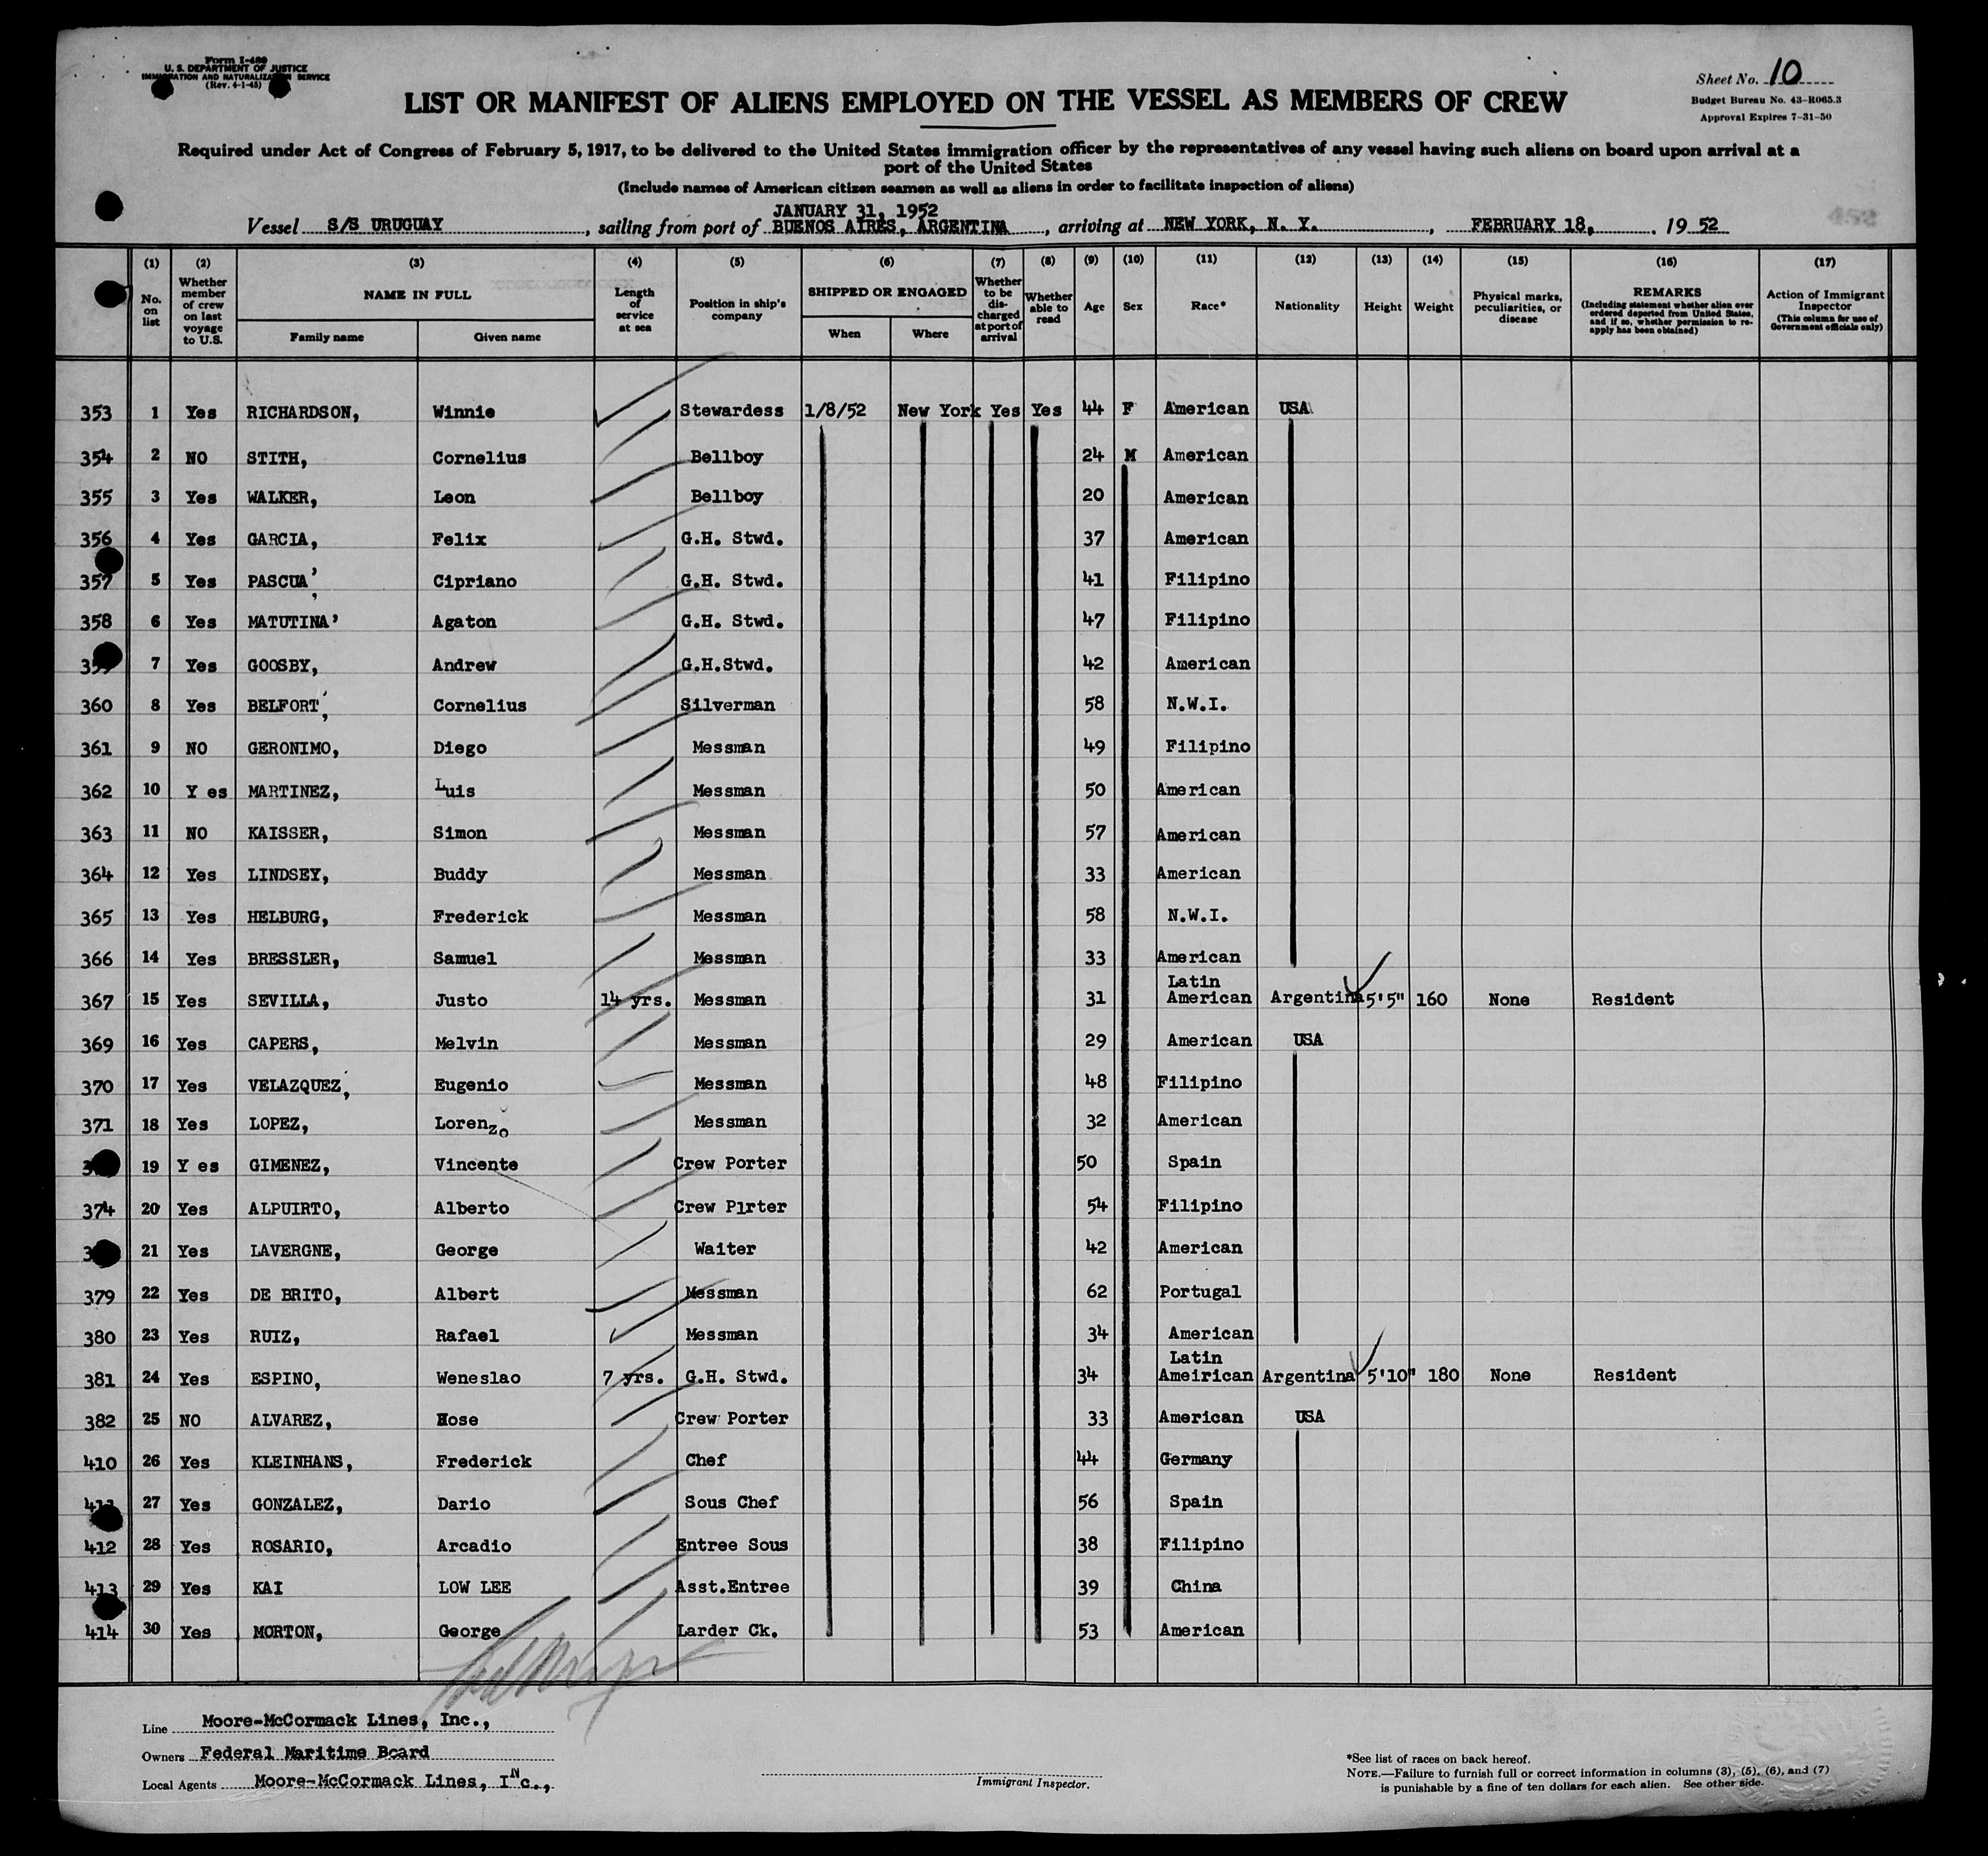 Form I-489
U. S. DEPARTMENT OF JUSTICE
IMMIGRATION AND NATURALIZATION SERVICE
(Rev. 4-1-45)
Sheet No. 10
Budget Bureau No. 43-R065.3
Approval Expires 7-31-50
LIST OR MANIFEST OF ALIENS EMPLOYED ON THE VESSEL AS MEMBERS OF CREW
Required under Act of Congress of February 5, 1917, to be delivered to the United States immigration officer by the representatives of any vessel having such aliens on board upon arrival at a
port of the United States
(Include names of American citizen seamen as well as aliens in order to facilitate inspection of aliens)
JANUARY 31, 1952
Vessel S/S URUGUAY, sailing from port of BUENOS AIRES, ARGENTINA, arriving at NEW YORK, N. Y., FEBRUARY 18, 19 52
(1) (2) (3) (4) (5) (6) (7) (8) (9) (10) (11) (12) (13) (14) (15) (16) (17)
No. on list
Whether member of crew on last voyage to U.S.
NAME IN FULL
Family name Given name
Length of service at sea
Position in ship's company
SHIPPED OR ENGAGED
When Where
Whether to be discharged at port of arrival
Whether able to read
Age Sex Race* Nationality Height Weight
Physical marks, peculiarities, or disease
REMARKS
(Including statement whether alien ever ordered deported from United States, and if so, whether permission to reapply has been obtained)
Action of Immigrant Inspector
(This column for use of Government officials only)
353 1 Yes RICHARDSON, Winnie Stewardess 1/8/52 New York Yes Yes 44 F American USA
354 2 NO STITH, Cornelius Bellboy 24 M American
355 3 Yes WALKER, Leon Bellboy 20 American
356 4 Yes GARCIA, Felix G.H. Stwd. 37 American
357 5 Yes PASCUA, Cipriano G.H. Stwd. 41 Filipino
358 6 Yes MATUTINA, Agaton G.H. Stwd. 47 Filipino
7 Yes GOOSBY, Andrew G.H.Stwd. 42 American
360 8 Yes BELFORT, Cornelius Silverman 58 N.W.I.
361 9 NO GERONIMO, Diego Messman 49 Filipino
362 10 Y es MARTINEZ, Luis Messman 50 American
363 11 NO KAISSER, Simon Messman 57 American
364 12 Yes LINDSEY, Buddy Messman 33 American
365 13 Yes HELBURG, Frederick Messman 58 N.W.I.
366 14 Yes BRESSLER, Samuel Messman 33 American
367 15 Yes SEVILLA, Justo 14 yrs. Messman 31 Latin American Argentina 5'5" 160 None Resident
369 16 Yes CAPERS, Melvin Messman 29 American USA
370 17 Yes VELAZQUEZ, Eugenio Messman 48 Filipino
371 18 Yes LOPEZ, Lorenzo Messman 32 American
19 Y es GIMENEZ, Vincente Crew Porter 50 Spain
374 20 Yes ALPUIRTO, Alberto Crew Plrter 54 Filipino
21 Yes LAVERGNE, George Waiter 42 American
379 22 Yes DE BRITO, Albert Messman 62 Portugal
380 23 Yes RUIZ, Rafael Messman 34 American
381 24 Yes ESPINO, Weneslao 7 yrs. G.H. Stwd. 34 Latin Ameirican Argentina 5'10" 180 None Resident
382 25 NO ALVAREZ, Hose Crew Porter 33 American USA
410 26 Yes KLEINHANS, Frederick Chef 44 Germany
411 27 Yes GONZALEZ, Dario Sous Chef 56 Spain
412 28 Yes ROSARIO, Arcadio Entree Sous 38 Filipino
413 29 Yes KAI LOW LEE Asst.Entree 39 China
414 30 Yes MORTON, George Larder Ck. 53 American
Line Moore-McCormack Lines, Inc.,
Owners Federal Maritime Board
Local Agents Moore-McCormack Lines, INc.,
Immigrant Inspector.
*See list of races on back hereof.
NOTE.—Failure to furnish full or correct information in columns (3), (5), (6), and (7)
is punishable by a fine of ten dollars for each alien. See other side.